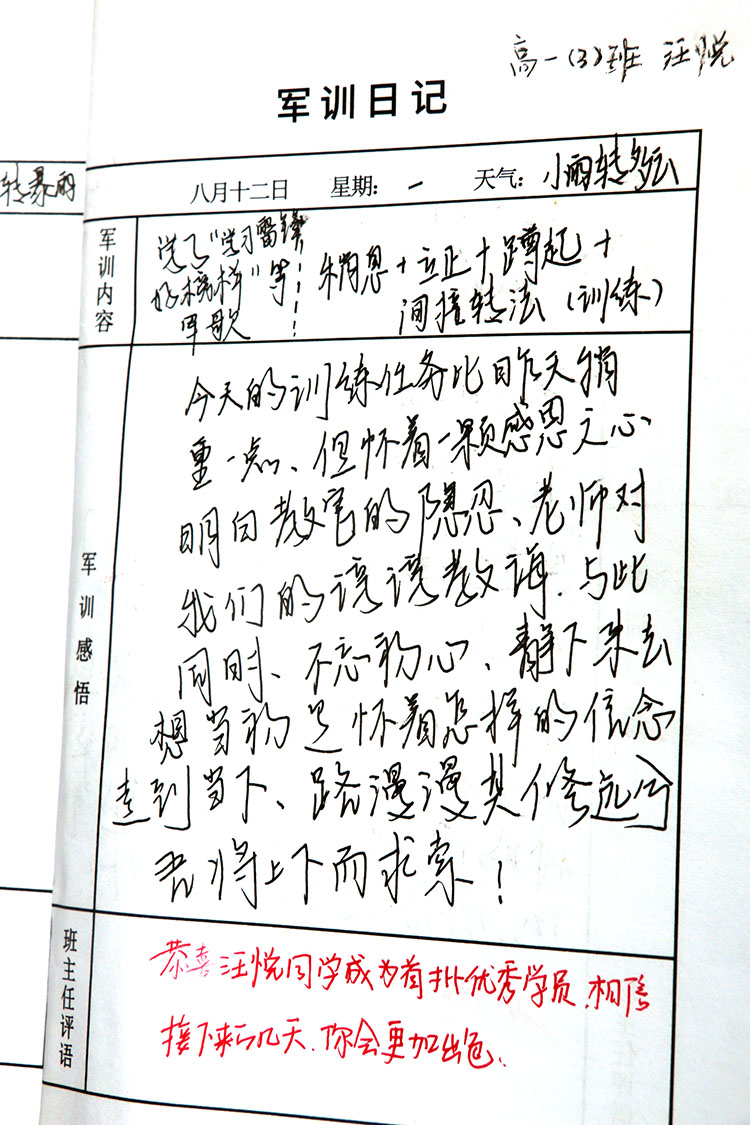 高一(3)班 汪悦
军训日记
转暴雨
八月十二日 星期: 一 天气: 小雨转多云
军训内容
学了"学习雷锋
好榜样"等
军歌
稍息+立正+蹲起+
间接转法(训练)
军训感悟
今天的训练任务比昨天稍
重一点、但怀着一颗感恩之心
明白教官的隐忍、老师对
我们的谆谆教诲.与此
同时、不忘初心、静下来去
想当初是怀着怎样的信念
走到当下、路漫漫其修远兮
吾将上下而求索!
班主任评语
恭喜汪悦同学成为首批优秀学员.相信
接下来的几天.你会更加出色.